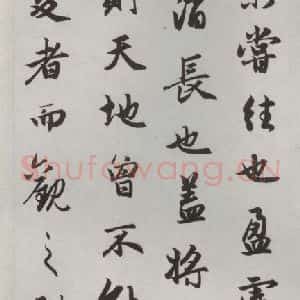 嘗往也盈虛
消長也蓋將
則天地曾不
變者而觀之
Shufawang.CN